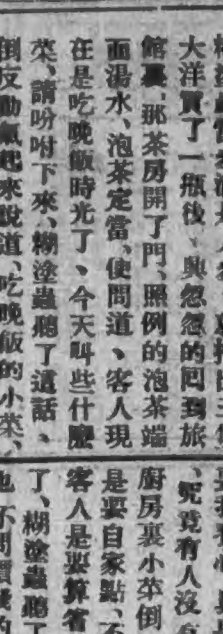 大洋買了一瓶後、興忽忽的囘到旅
館裏、那茶房開了門、照例的泡茶端
面湯水、泡茶定當、便問道、客人現
在是吃晚飯時光了、今天叫些什麼
菜、請吩咐下來、糊塗蟲聽了這話、
倒反動氣起來說道、吃晚飯的小菜、
、究竟有人沒
廚房裏小菜倒
是要自家點、
客人是要算省
了、糊塗蟲聽了
也不問價錢的